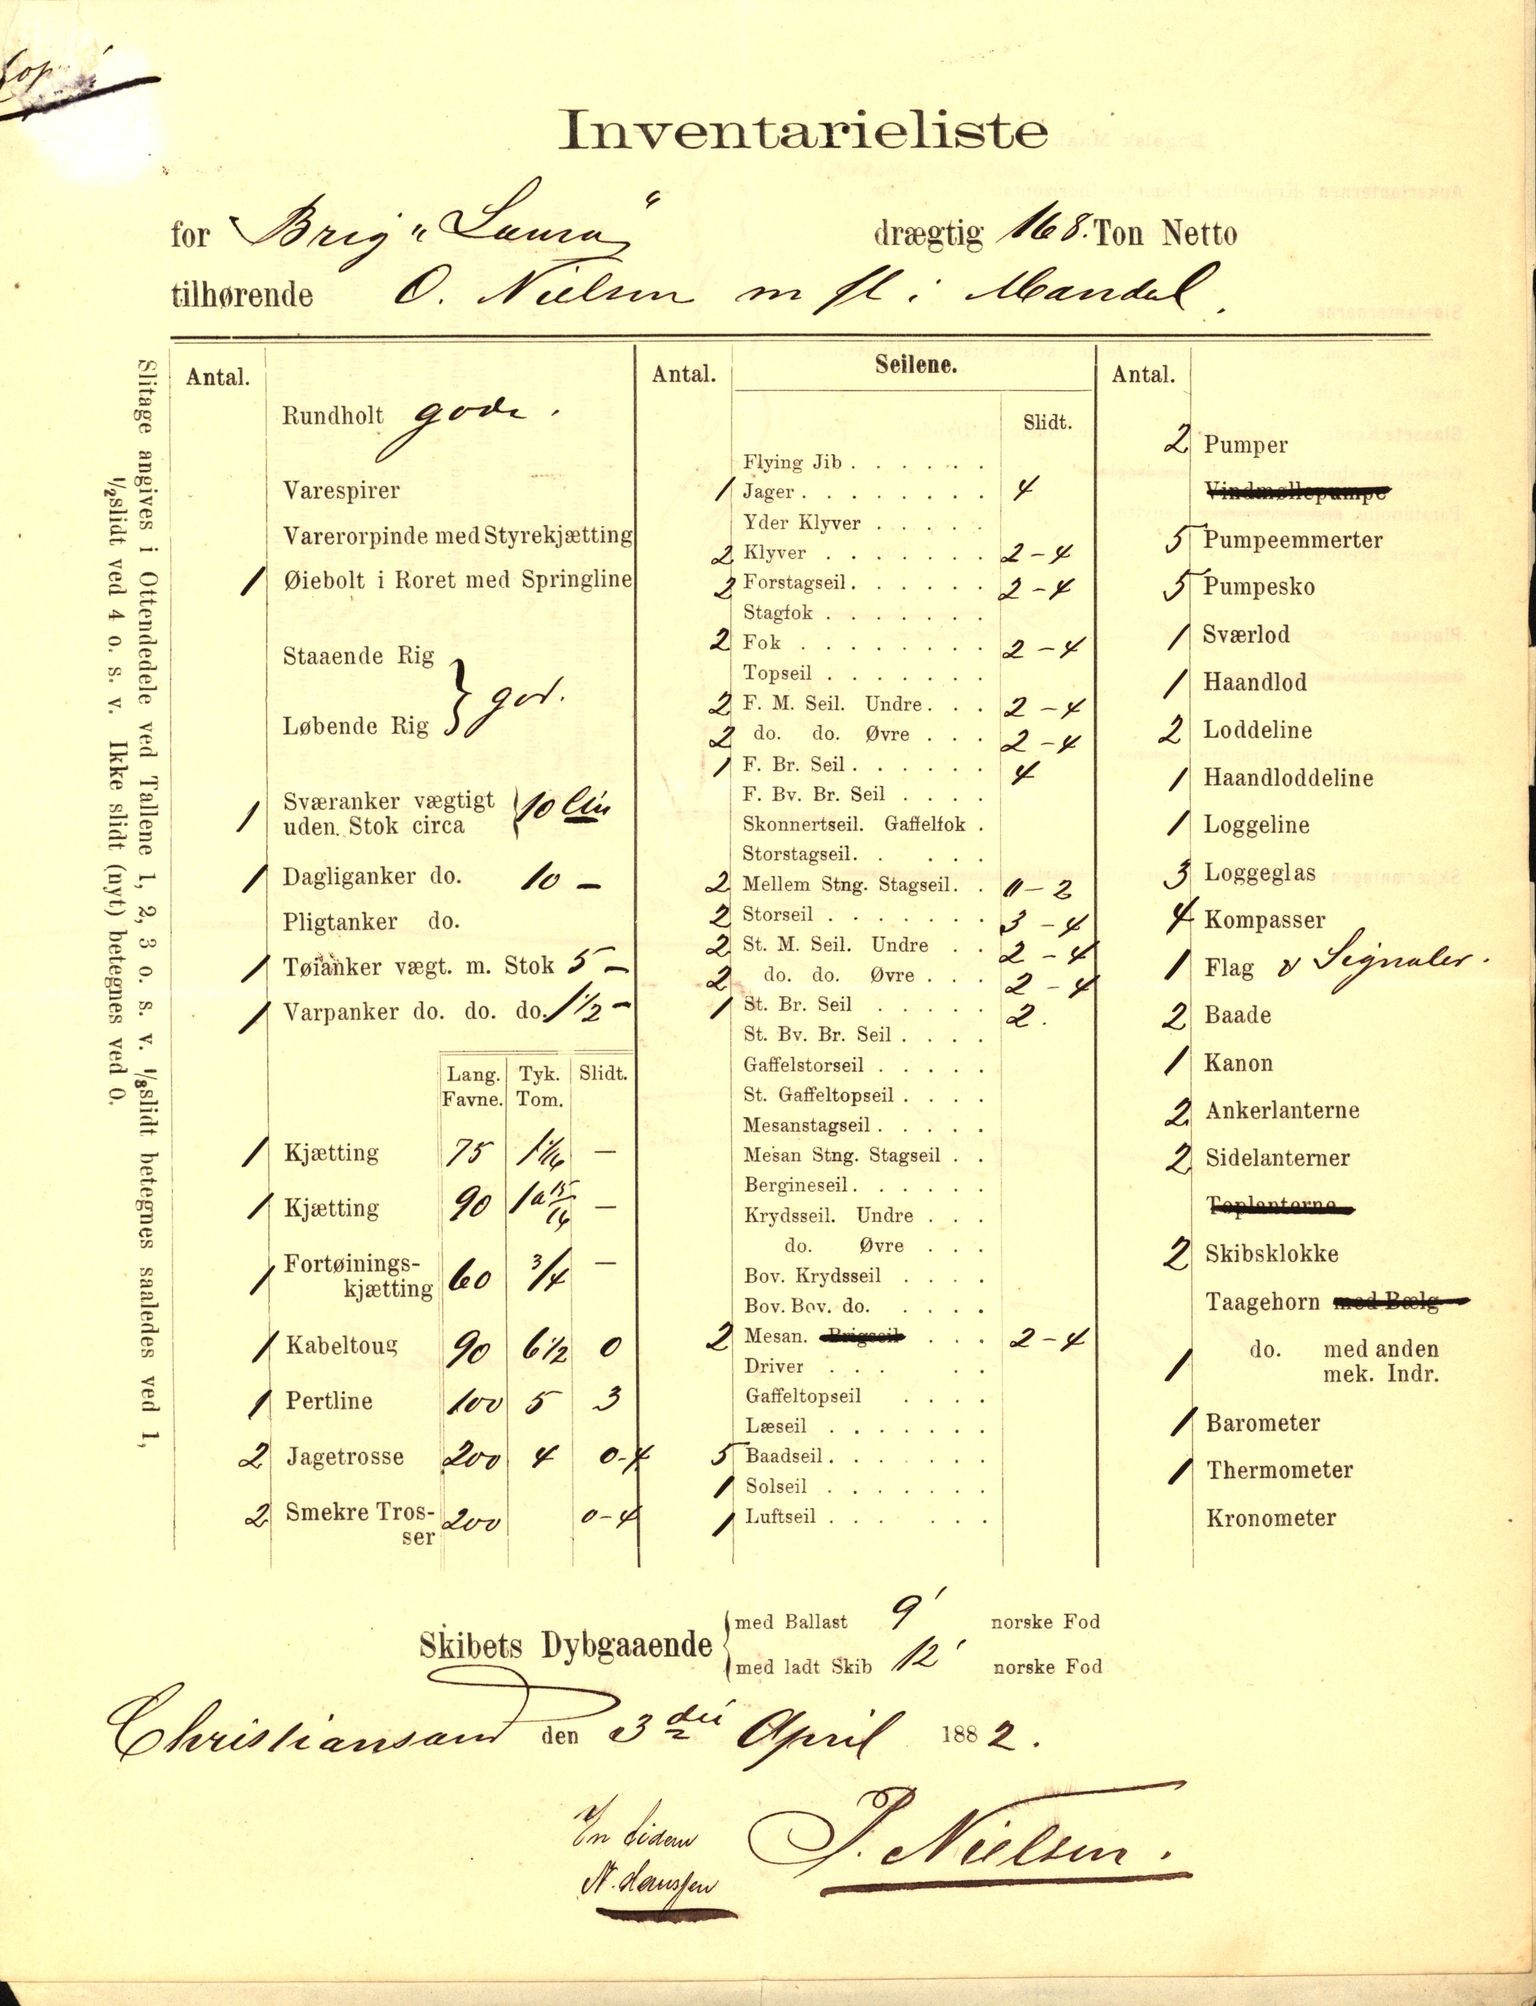 Inventarieliste
for Brig "Laura" drægtig 168. Ton Netto
tilhørende O. Nielsen m fl i Mandal.
Slitage angives i Ottendedele ved Tallene 1, 2, 3 o. s. v. 1/8slidt betegnes saaledes ved 1,
1/2slidt ved 4 o. s. v. Ikke slidt (nyt) betegnes ved 0.
Antal.
Rundholt gode.
Varespirer
Varerorpinde med Styrekjætting
1 Øiebolt i Roret med Springline
Staaende Rig
} god.
Løbende Rig
1 Sværanker vægtigt
uden. Stok circa { 10
1 Dagliganker do. 10 –
Pligtanker do.
1 Tøianker vægt. m. Stok 5 –
1 Varpanker do. do. do. 1 1/2 –
Lang. Tyk. Slidt.
Favne. Tom.
1 Kjætting 75 1 1/16 –
1 Kjætting 90 1 a 15/16 –
Fortøinings-
1 kjætting 60 3/4 –
1 Kabeltoug 90 6 1/2 0
1 Pertline 100 5 3
2 Jagetrosse 200 4 0-4
2 Smekre Tros-
ser 200 0-4
Antal. Seilene.
Slidt.
Flying Jib . . . . . .
1 Jager . . . . . . . . 4
Yder Klyver . . . . .
2 Klyver . . . . . . . 2-4
2 Forstagseil . . . . . . 2-4
Stagfok . . . . . . .
2 Fok . . . . . . . . 2-4
Topseil . . . . . . .
2 F. M. Seil. Undre . . . 2-4
2 do. do. Øvre . . . 2-4
1 F. Br. Seil . . . . . . 4
F. Bv. Br. Seil . . . .
Skonnertseil. Gaffelfok .
Storstagseil. . . . .
2 Mellem Stng. Stagseil. . 0-2
2 Storseil . . . . . . . 3-4
2 St. M. Seil. Undre . . 2-4
2 do. do. Øvre . . . 2-4
1 St. Br. Seil . . . . . 2.
St. Bv. Br. Seil . . . .
Gaffelstorseil . . . . .
St. Gaffeltopseil . . . .
Mesanstagseil . . . . .
Mesan Stng. Stagseil . .
Bergineseil . . . . . .
Krydsseil. Undre . . .
do. Øvre . . .
Bov. Krydsseil . . . .
Bov. Bov. do. . . . .
2 Mesan. Brigseil . . . 2-4
Driver . . . . .
Gaffeltopseil . . . .
Læseil . . . . . . .
5 Baadseil . . . . . . .
1 Solseil . . . . . . .
1 Luftseil . . . . . .
Antal.
2 Pumper
Vindmøllepumpe
5 Pumpeemmerter
5 Pumpesko
1 Sværlod
1 Haandlod
2 Loddeline
1 Haandloddeline
1 Loggeline
3 Loggeglas
4 Kompasser
1 Flag & Signaler.
2 Baade
1 Kanon
2 Ankerlanterne
2 Sidelanterner
Toplanterne
2 Skibsklokke
Taagehorn med Bælg
1 do. med anden
mek. Indr.
1 Barometer
1 Thermometer
Kronometer
Skibets Dybgaaende
{ med Ballast 9' norske Fod
med ladt Skib 12' norske Fod
Christiansand den 3die April 1882.
P. Nielsen.
N. Hanssen